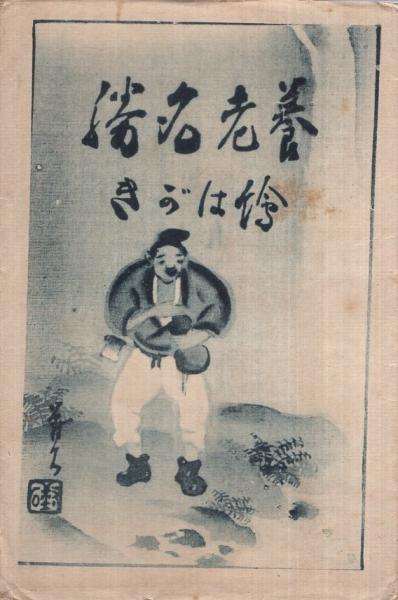 養老名勝
繪はがき